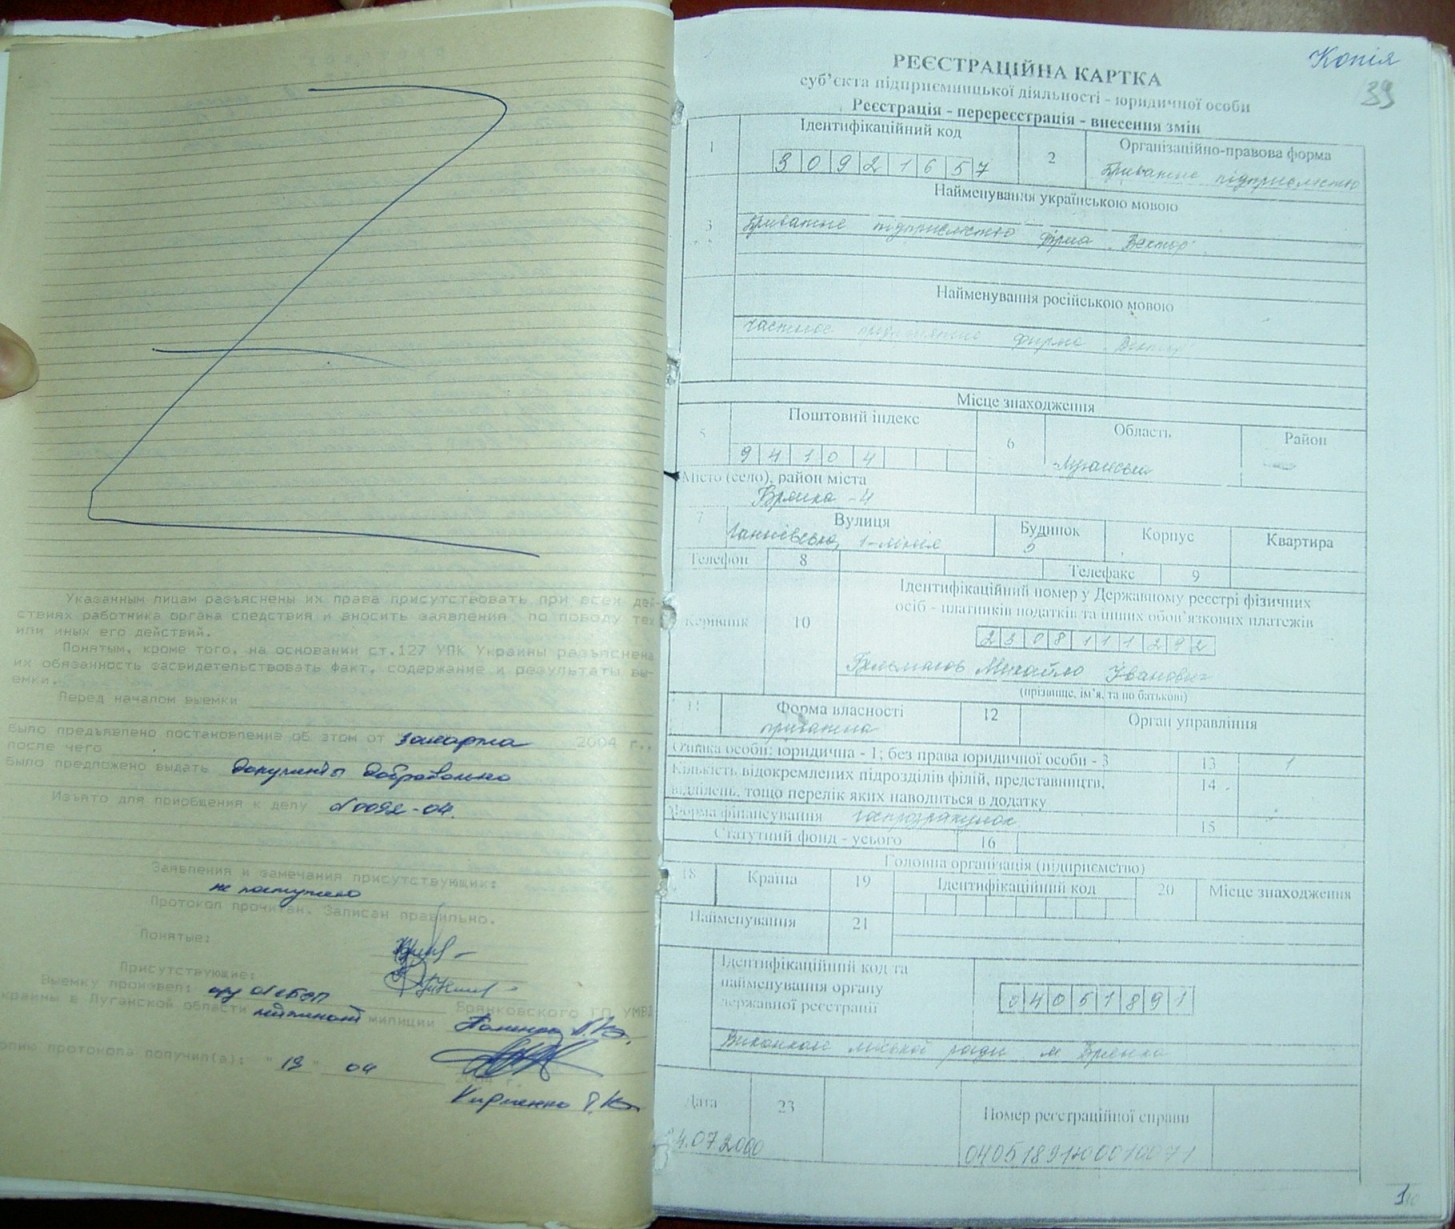 Указанным лицам разъяснены их права присутствовать при всех дей-
ствиях работника органа следствия и вносить заявления по поводу тех
или иных его действий.
Понятым, кроме того, на основании ст.127 УПК Украины разъяснена
их обязанность засвидетельствовать факт, содержание и результаты вы-
емки.
Перед началом выемки
было предъявлено постановление об этом от 2004 г.,
после чего
было предложено выдать документы добровольно
Изъято для приобщения к делу
Заявления и замечания присутствующих:
не поступило
Протокол прочитан. Записан правильно.
Понятые:
Присутствующие:
Выемку произвел: Брянковского ГО УМВД
Украины в Луганской области лейтенант милиции
Копию протокола получил(а): " 13 " 04
Кириенко
Копія
39
РЕЄСТРАЦІЙНА КАРТКА
суб'єкта підприємницької діяльності - юридичної особи
Реєстрація - перереєстрація - внесення змін
1 Ідентифікаційний код 2 Організаційно-правова форма
30921657 Приватне підприємство
Найменування українською мовою
3 Приватне підприємство фірма "Вектор"
Найменування російською мовою
Частное предприятие фирма "Вектор"
Місце знаходження
5 Поштовий індекс 6 Область Район
94104 Луганська
Місто (село), район міста
Брянка - 4
7 Вулиця Будинок Корпус Квартира
1-лінія 5
Телефон 8 Телефакс 9
Керівник 10 Ідентифікаційний номер у Державному реєстрі фізичних
осіб - платників податків та інших обов'язкових платежів
2308111292
Михайло Іванович
(прізвище, ім'я, та по батькові)
11 Форма власності 12 Орган управління
приватна
Ознака особи: юридична - 1; без права юридичної особи - 3 13 1
Кількість відокремлених підрозділів філій, представництв, 14
відділень, тощо перелік яких наводиться в додатку
Форма фінансування госпрозрахунок 15
Статутний фонд - усього 16
Головна організація (підприємство)
18 Країна 19 Ідентифікаційний код 20 Місце знаходження
Найменування 21
Ідентифікаційний код та
найменування органу
державної реєстрації
04051891
Виконком міської ради м Брянка
Дата 23 Номер реєстраційної справи
4.07.2000 04051891Ю0010071
1